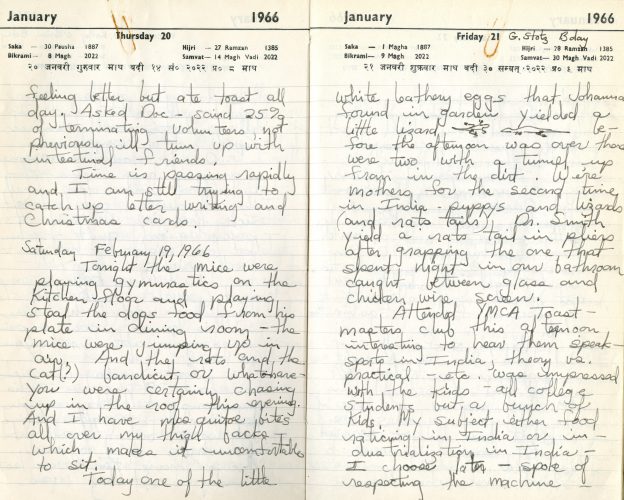 January 1966
Thursday 20
Saka — 30 Pausha 1887 Hijri — 27 Ramzan 1385
Bikrami — 8 Magh 2022 Samvat — 14 Magh Vadi 2022
२० जनवरी गुरुवार माघ वदी १४ सं० २०२२ प्र० ८ माघ
feeling better but ate toast all
day. Asked Doc - said 25%
of terminating volunteers, not
previously ill turn up with
intestinal friends.
Time is passing rapidly
and I am still trying to
catch up letter writing and
Christmas cards.
Saturday February 19, 1966
Tonight the mice were
playing gymnastics on the
kitchen floor and playing
steal the dogs food from his
plate in dining room - the
mice were jumping up in
air. And the rats and the
cat(?) bandicut or what-have-
you were certainly chasing
up in the roof this evening.
And I have mosquitoe bites
all over my thigh backs
which makes it uncomfortable
to sit.
Today one of the little
January 1966
Friday 21 G. Stotz Bday
Saka — 1 Magha 1887 Hijri — 28 Ramzan 1385
Bikrami — 9 Magh 2022 Samvat — 30 Magh Vadi 2022
२१ जनवरी शुक्रवार माघ वदी ३० सम्वत् २०२२ प्र० ९ माघ
white leathery eggs that Johanna
found in garden yielded a
little lizard be-
fore the afternoon was over there
were two with a tunnel up
from in the dirt. Were
mothers for the second time
in India - puppys and lizards
(and rats tails) Dr. Smith
yield a rats tail in pliers
after grapping the one that
spent night in our bathroom
caught between glass and
chicken wire screen.
Attend YMCA Toast-
masters club this afternoon
interesting to hear them speak-
sports in India, theory vs.
practical - etc was impressed
with the kids - all college
students but a bunch of
kids. My subject either food
rationing in India or in-
dustrialization in India -
I choose later - spoke of
respecting the machine